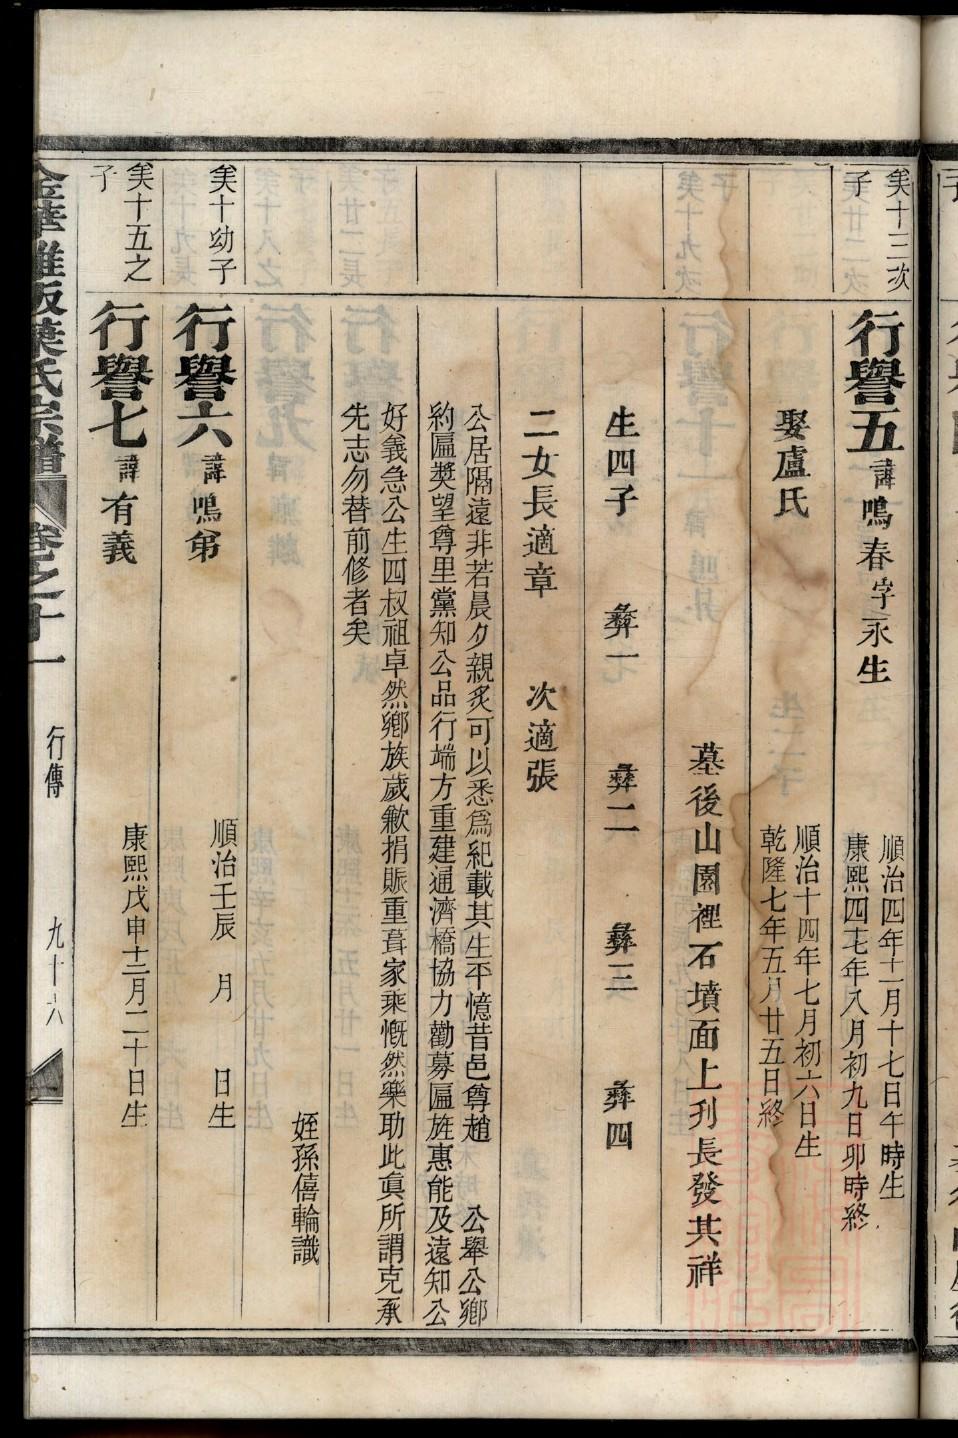 羙十三次
子
行譽五 諱鳴春字永生
順治四年十一月十七日午時生
康熙四十七年八月初九日卯時終
娶盧氏
順治十四年七月初六日生
乾隆七年五月廿五日終
墓後山園裡石墳面上刋長發其祥
生四子 彝一 彝二 彝三 彝四
二女長適章 次適張
公居隔遠非若晨夕親炙可以悉爲紀載其生平憶昔邑尊趙 公舉公鄉
約匾奬望尊里黨知公品行端方重建通濟橋協力勸募匾旌惠能及遠知公
好義急公生四叔祖卓然鄉族歲歉捐賑重葺家乘慨然樂助此眞所謂克承
先志勿替前修者矣
姪孫僖輪識
羙十幼子
行譽六 諱鳴第
順治壬辰 月 日生
羙十五之
子
行譽七 諱有義
康熙戊申十二月二十日生
金華雅畈葉氏宗譜 卷之十一 行傳 九十六